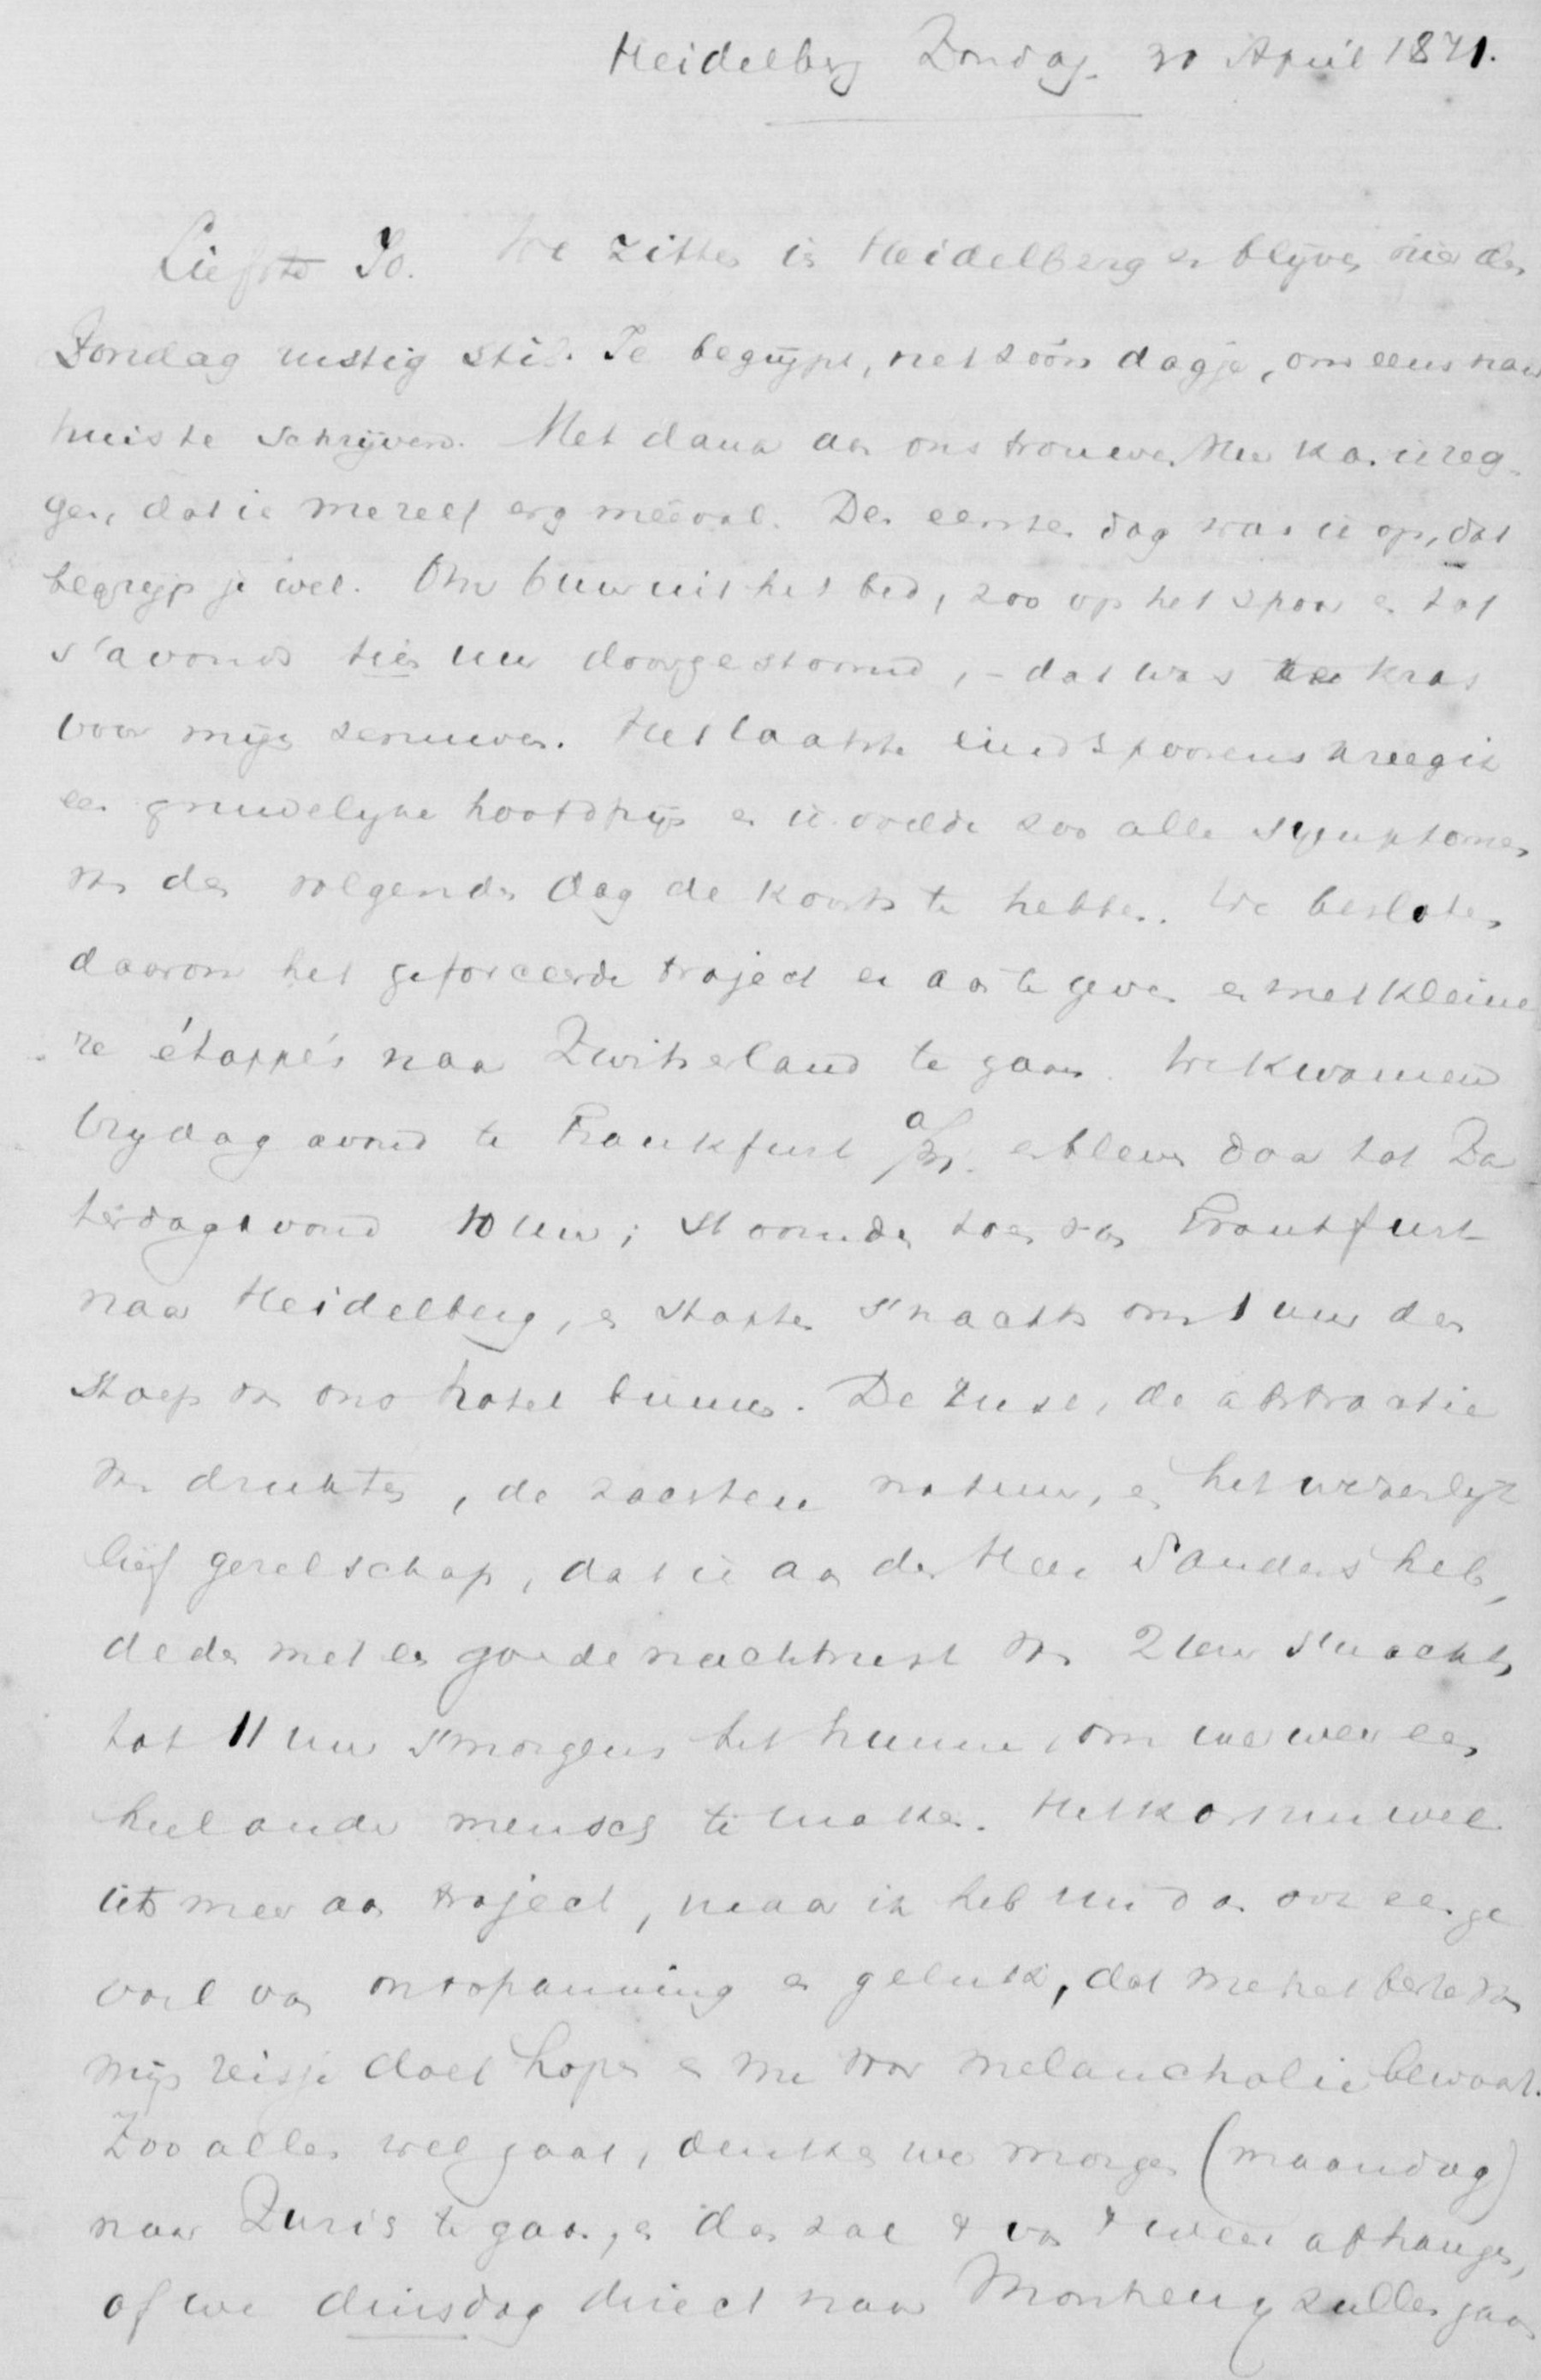 Heidelberg Zondag. 30 April 1871.
Liefste Jo. We zitten in Heidelberg en blijven hier den
Zondag rustig stil. Je begrijpt, net zóón dagje, om eens naar
huis te schrijven. Met dank aan ons trouwe kan ik zeg-
gen, dat ik mezelf erg meêval. Den eersten dag was ik op, dat
begrijp je wel. Om 6 uur uit het bed, zoo op het spoor en tot
s'avonds tien uur doorgestoomd, - dat was te kras
voor mijn zenuwen. Het laatste eind spoorens kreeg ik
een gruwelijke hoofdpijn en ik voelde zoo alle symptomen
van den volgenden dag de koorts te hebben. We besloten
daarom het geforceerde traject er aan te geven en met kleine
re étappe's naar Zwitserland te gaan. We kwamen
Vrijdag avond te Frankfurt a/M. en bleven daar tot Za
terdagavond 10 uur; stoomden toen van Frankfurt
naar Heidelberg, en stapten s'nachts om 1 uur den
stoep van ons hotel binnen. De rust, de abstractie
van drukten, de zachtere natuur, en het werkelijk
lief gezelschap, dat ik aan den Heer Sanders heb,
deden met en goede nachtrust van 2 uur s'nachts
tot 11 uur s'morgens het hunne, om me weer een
heel ander mensch te maken. Het kost nu wel
iets meer aan traject, maar ik heb nu dan ook een ge
voel van ontspanning en geluk, dat me het beste van
mijn reisje doet hopen en me voor melancholie bewaart.
Zoo alles wel gaat, denken we morgen (maandag)
naar Zurig te gaan, en dan zal 't van 't weer afhangen,
of we dinsdag direct naar zullen gaan